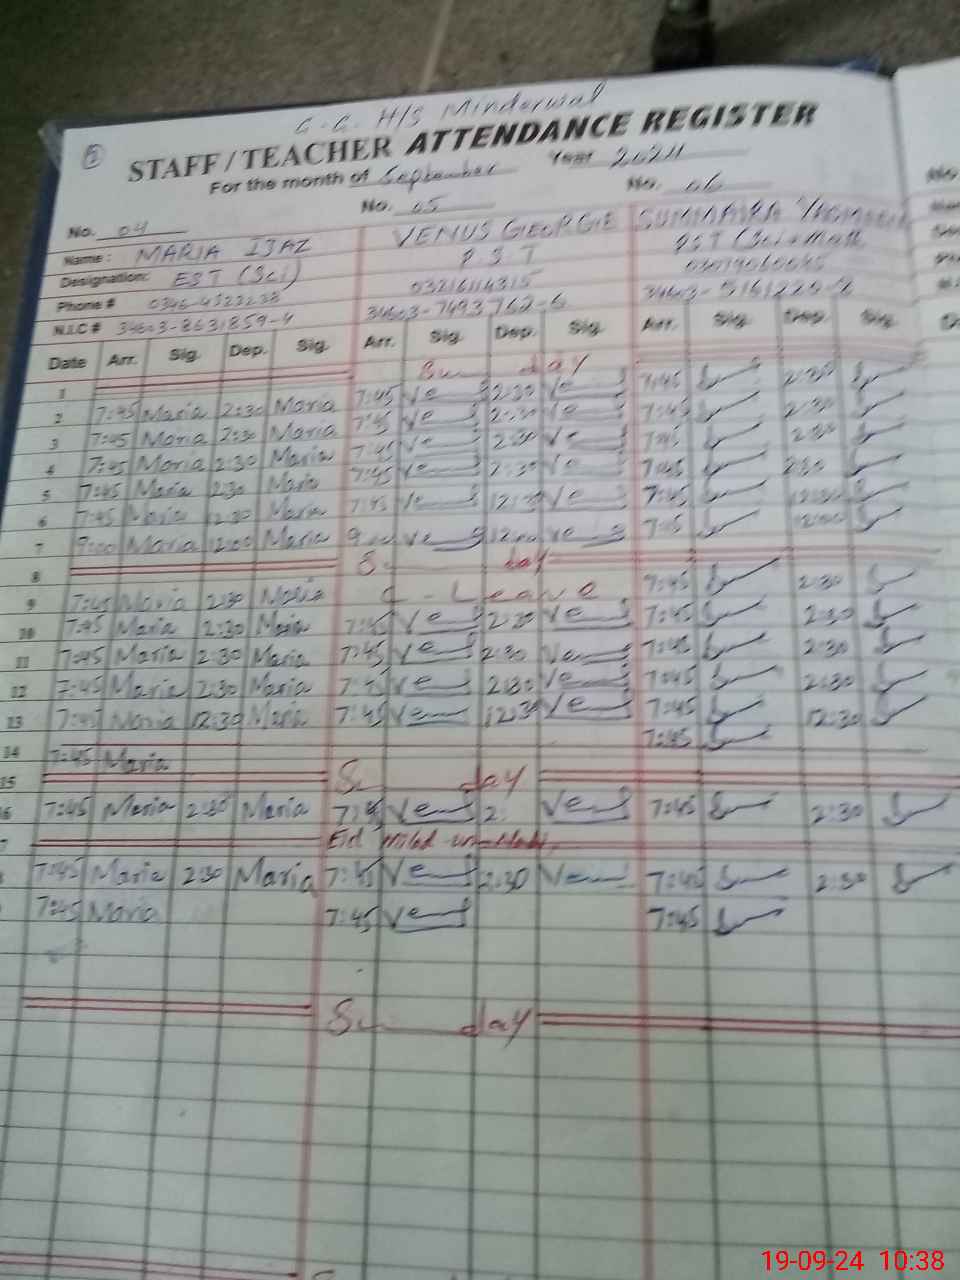 G. G. H/S Minderwal
5
STAFF / TEACHER ATTENDANCE REGISTER
For the month of September Year 2024
No. 04 No. 05 No. 06
Name : MARIA IJAZ VENUS GEORGIE SUMMAIRA
Designation: EST (Sci) P.S.T PST (Sci-Math
Phone # 0346-4522238 03216114315
N.I.C # 34603-8631859-4 34603-7493762-6
Date Arr. Sig. Dep. Sig. Arr. Sig. Dep. Sig. Arr. Sig. Dep. Sig.
1 Sunday
2 7:45 Maria 2:30 Maria 7:45 Ve 2:30 Ve 7:45 2:30
3 7:45 Maria 2:30 Maria 7:45 Ve 2:30 Ve 7:45 2:30
4 7:45 Maria 2:30 Maria 7:45 Ve 2:30 Ve 7:45 2:30
5 7:45 Maria 2:30 Maria 7:45 Ve 2:30 Ve 7:45 2:30
6 7:45 Maria 12:30 Maria 7:45 Ve 12:30 Ve 7:45 12:30
7 9:00 Maria 12:00 Maria 9:00 Ve 12:00 Ve 12:00
8 Sunday
9 7:45 Maria 2:30 Maria C-Leave 7:45 2:30
10 7:45 Maria 2:30 Maria 7:45 Ve 2:30 Ve 7:45 2:30
11 7:45 Maria 2:30 Maria 7:45 Ve 2:30 Ve 7:45 2:30
12 7:45 Maria 2:30 Maria 7:45 Ve 2:30 Ve 7:45 2:30
13 7:45 Maria 12:30 Maria 7:45 Ve 12:30 Ve 7:45 12:30
14 7:45 Maria 7:45
15 Sunday
6 7:45 Maria 2:30 Maria 7:45 Ve 2: Ve 7:45 2:30
7 Eid Milad
7:45 Maria 2:30 Maria 7:45 Ve 2:30 Ve 7:45 2:30
7:45 Maria 7:45 Ve 7:45
Sunday
19-09-24 10:38